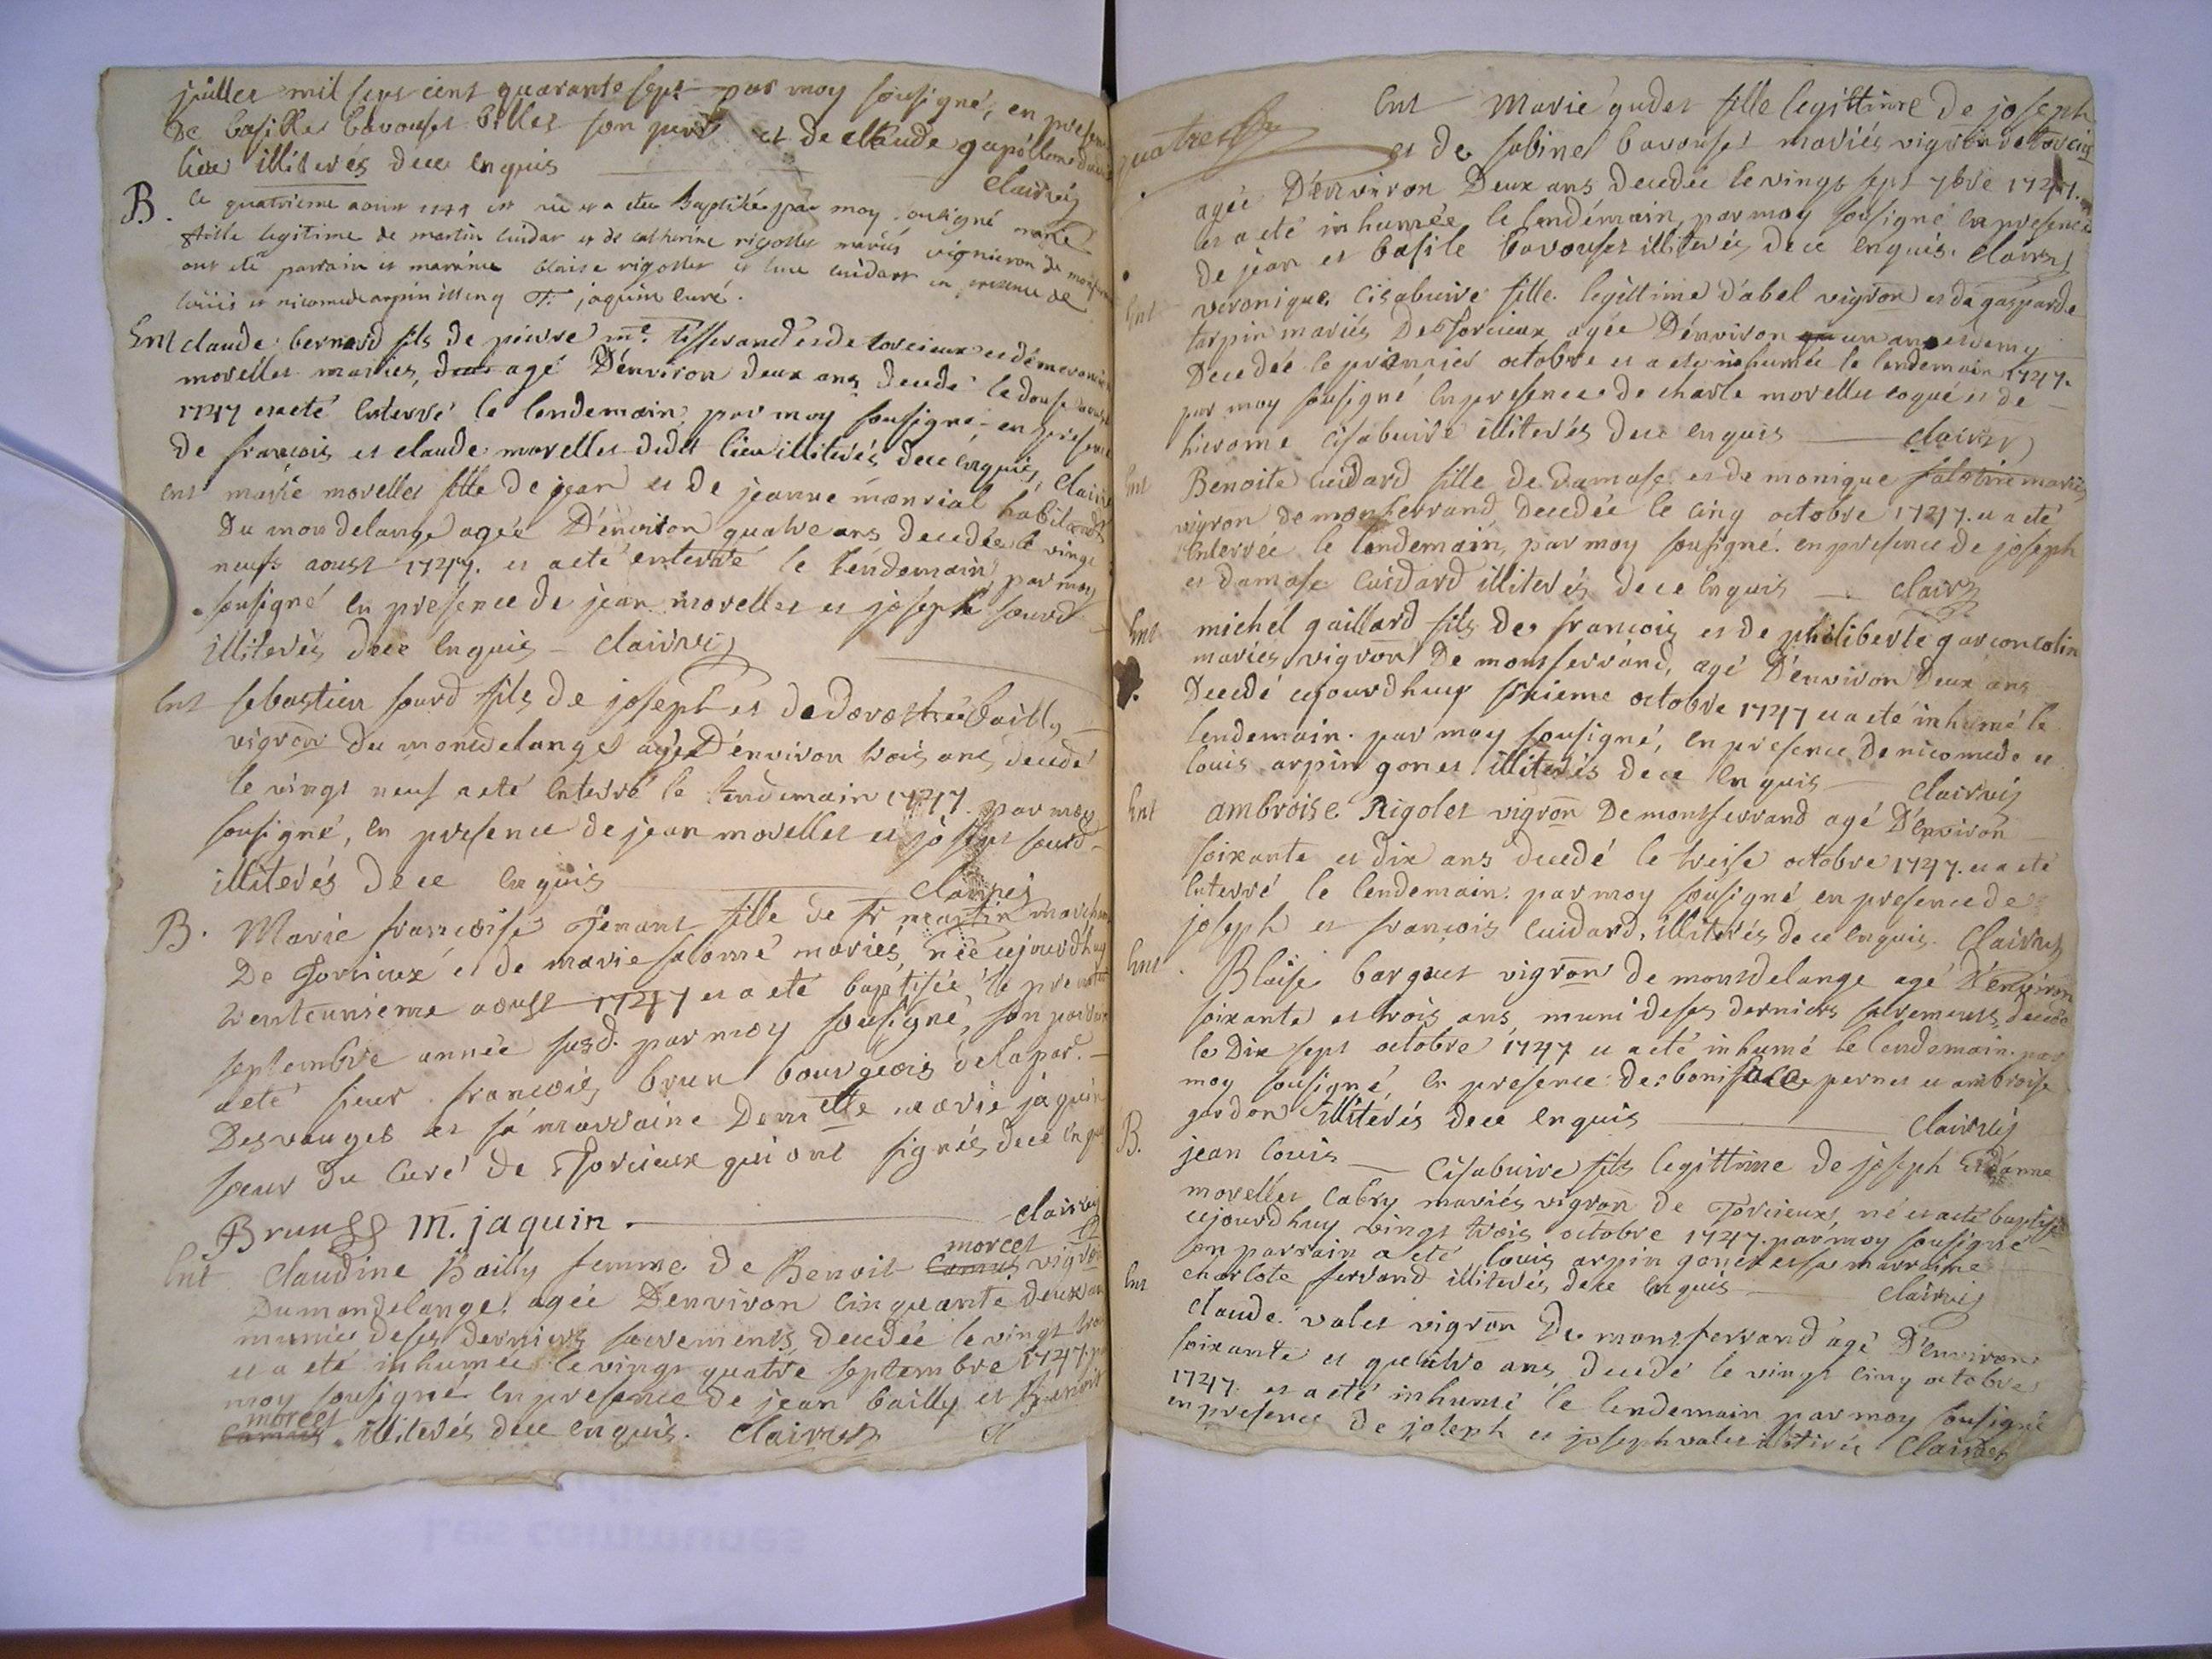 juillet mil sept cent quarante sept par moy sousigné, en presence
De basille bavouset billet son pere et de claude
lieu illiterés dece enquis
clairvis
B. le quatrieme aoust 1747 est née et a etee Baptisée par moy sousigné marie
fille legitime de martin cuidar et de catherine rigollet mariés vigneron de montferrand
ont eté parrain et maraine blaise rigollet et luce cuidard en presence de
louis et nicomede arpin illeng F. jaquin curé.
Ent claude bernard fils de pierre me. tisserand et de torcieux et de
morellet mariés, agé D'environ deux ans decedé le douse aoust
1747 et a eté Enterré le lendemain par moy sousigné en presence
de francois et claude morellet didet lieu illiterés dece enquis, clairvis
Ent marie morellet fille de jean et de jeanne monrial habitants
Du mondelange agée D'environ quatre ans decedée le vingt
neuf aoust 1747. et a eté enterré le lendemain par moy
sousigné en presence de jean morellet et joseph sourd
illiterés dece enquis clairvis
Ent sebastien sourd fils de joseph et de dorothée bailly
vigron du mondelange agé D'environ trois ans decedé
le vingt neuf a eté enterré le lendemain 1747. par moy
sousigné, en presence de jean morellet et joseph sourd
illiterés dece enquis
clairvis
B. Marie francoise Tenant fille de sr martin marchand
De Torcieux et de marie salomé mariés, née cejourdhuy
trenteunieme aoust 1747 et a eté baptisée le premier
septembre année susd. par moy sousigné, son parrain
a eté sieur francois brun bourgeois de la par.
Desvanges et sa marraine Demlle marie jaquin
soeur du curé de Torcieux qui ont signés dece enquis
Brun M. jaquin.
clairvis
Ent claudine Bailly femme de Benoit camus morcet vigron
Du mondelange. agée D'environ cinquante deux ans
munie de ses derniers sacrements decedée le vingt trois
et a eté inhumée le vingt quatre septembre 1747. par
moy sousigné en presence de jean bailly et Benoit
morcet
camus illiterés dece enquis. clairvis
quatre
Ent Marie gudet fille legittime de joseph
et de sabine bavouset mariés vigron de torcieu
agée D'environ Deux ans decedée le vingt sept 7bre 1747.
et a eté inhumée le lendemain, par moy sousigné en presence
de jean et basile bavouset illiterés dece enquis. clairvis
Ent veronique cisabuire fille legittime d'abel vigron et de gasparde
tarpin mariés De Torcieux agée D'environ un an et demy
Decedée le premier octobre et a eté inhumée le lendemain 1747.
par moy sousigné en presence de charle morellet coqué et de
hierome cisabuire illiterés dece enquis clairvis
Ent Benoite cuidard fille de Damase et de monique mariés
vigron de montferrand decedée le cinq octobre 1747. et a eté
Enterrée le lendemain, par moy sousigné. en presence de joseph
et damase cuidard illiterés dece enquis clairvis
Ent michel gaillard fils de francois et de philiberte garconcolin
mariés vigron De montferrand, agé D'environ Deux ans
Decedé cejourdhuy sixieme octobre 1747 et a eté inhumé le
lendemain. par moy sousigné, en presence De nicomede et
louis arpin gonet illiterés dece enquis clairvis
Ent ambroise Rigolet vigron De montferrand agé D'environ
soixante et dix ans decedé le treise octobre 1747. et a eté
Enterré le lendemain par moy sousigné en presence de
joseph et francois cuidard, illiterés dece enquis. clairvis
Ent Blaise barquet vigron de montdelange agé D'environ
soixante et trois ans, muni de ses derniers sacrements, decedé
le Dix sept octobre 1747 et a eté inhumé le lendemain. par
moy sousigné en presence de boniface pernet et ambroise
gordon illiterés dece enquis clairvis
B. jean louis cisabuire fils legittime de joseph et d'anne
morellet cabry mariés vigron de Torcieux, né et a eté baptisé
cejourdhuy vingt trois octobre 1747. par moy sousigné
son parrain a eté louis arpin gonet et sa marraine
charlote ferrand illiterés, dece enquis clairvis
Ent claude valet vigron De montferrand agé D'environ
soixante et quatre ans, decedé le vingt cinq octobre
1747. et a eté inhumé le lendemain par moy sousigné
en presence de joseph et joseph valet illiterés clairvis